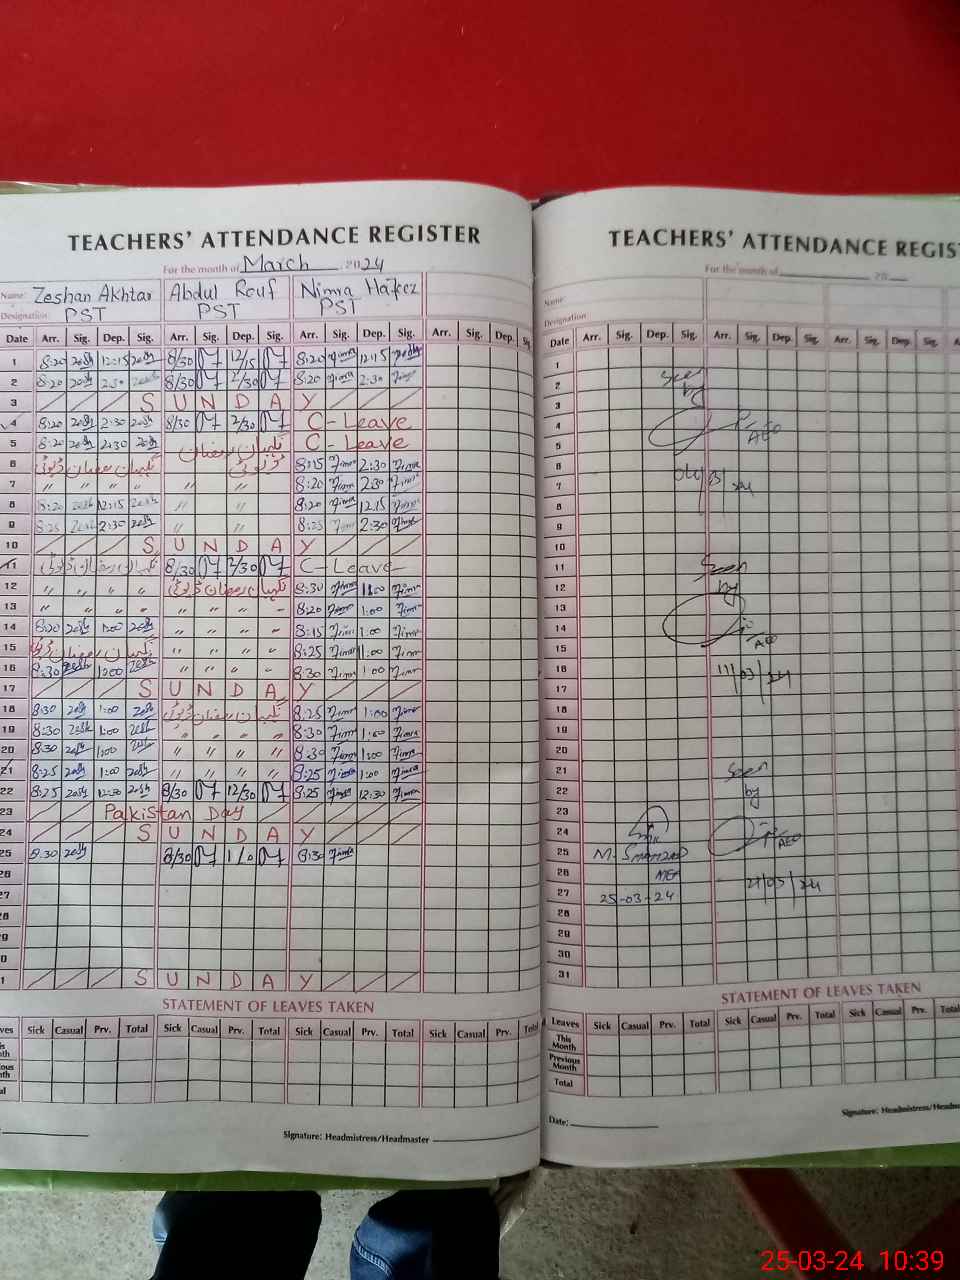 TEACHERS' ATTENDANCE REGISTER
For the month of March 2024
Name: Zeshan Akhtar Abdul Rouf Nimra Hafeez
Designation: PST PST PST
Date Arr. Sig. Dep. Sig. Arr. Sig. Dep. Sig. Arr. Sig. Dep. Sig. Arr. Sig. Dep.
1 8:20 12:15 8/30 12/15 8:20 12:15
2 8:20 2:30 8/30 2/30 8:20 2:30
3 S U N D A Y
4 8:20 2:30 8/30 2/30 C-Leave
5 8:20 2:30 نگہبان رمضان C-Leave
6 نگہبان رمضان ڈیوٹی ڈیوٹی 8:15 2:30
7 " " " " " 8:20 2:30
8 8:20 12:15 " " 8:20 12:15
9 8:25 2:30 " " 8:25 2:30
10 S U N D A Y
11 نگہبان رمضان ڈیوٹی 8/30 2/30 C-Leave
12 " " " " نگہبان رمضان ڈیوٹی 8:30
13 " " " " " " 8:20 1:00
14 8:20 1:00 " " " 8:15 1:00
15 نگہبان رمضان ڈیوٹی " " " " 8:25 1:00
16 8:30 " " " " 8:30 1:00
17 S U N D A Y
18 8:30 1:00 نگہبان رمضان ڈیوٹی 8:25 1:00
19 8:30 1:00 " " " " 8:30 1:00
20 8:30 1:00 " " " " 8:30 1:00
21 8:25 1:00 " " " " 8:25 1:00
22 8:25 12:30 8/30 12/30 8:25 12:30
23 Pakistan Day
24 S U N D A Y
25 8:30 8/30 8:30
26
27
28
29
30
31 S U N D A Y
STATEMENT OF LEAVES TAKEN
Leaves Sick Casual Prv. Total Sick Casual Prv. Total Sick Casual Prv. Total Sick Casual Prv. Total
This Month
Previous Month
Total
Signature: Headmistress/Headmaster
TEACHERS' ATTENDANCE REGIST
For the month of 20
Name:
Designation
Date Arr. Sig. Dep. Sig. Arr. Sig. Dep. Sig. Arr. Sig. Dep. Sig.
1
2 Seen
3 by
4
5 AEO
6
7 04/3/24
8
9
10
11 Seen
12 by
13
14
15 AEO
16 11/03/24
17
18
19
20
21 Seen
22 by
23
24 AEO
25
26 21/03/24
27 25-03-24
28
29
30
31
STATEMENT OF LEAVES TAKEN
Leaves Sick Casual Prv. Total Sick Casual Prv. Total Sick Casual Prv.
This Month
Previous Month
Total
Date:
Signature: Headmistress/Headm
25-03-24 10:39